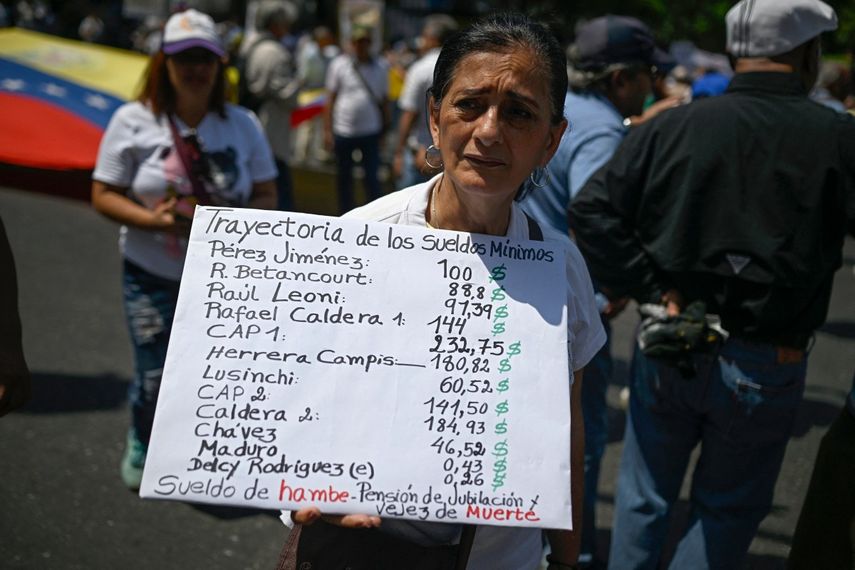 Trayectoria de los Sueldos Mínimos
Pérez Jiménez: 100 $
R. Betancourt: 88,8 $
Raúl Leoni: 91,39 $
Rafael Caldera 1: 144 $
CAP 1: 232,75 $
Herrera Campis: 180,82 $
Lusinchi: 60,52 $
CAP 2: 141,50 $
Caldera 2: 184,93 $
Chávez 46,52 $
Maduro 0,43 $
Delcy Rodríguez (e) 0,26 $
Sueldo de hambe - Pensión de Jubilación y
vejez de Muerte